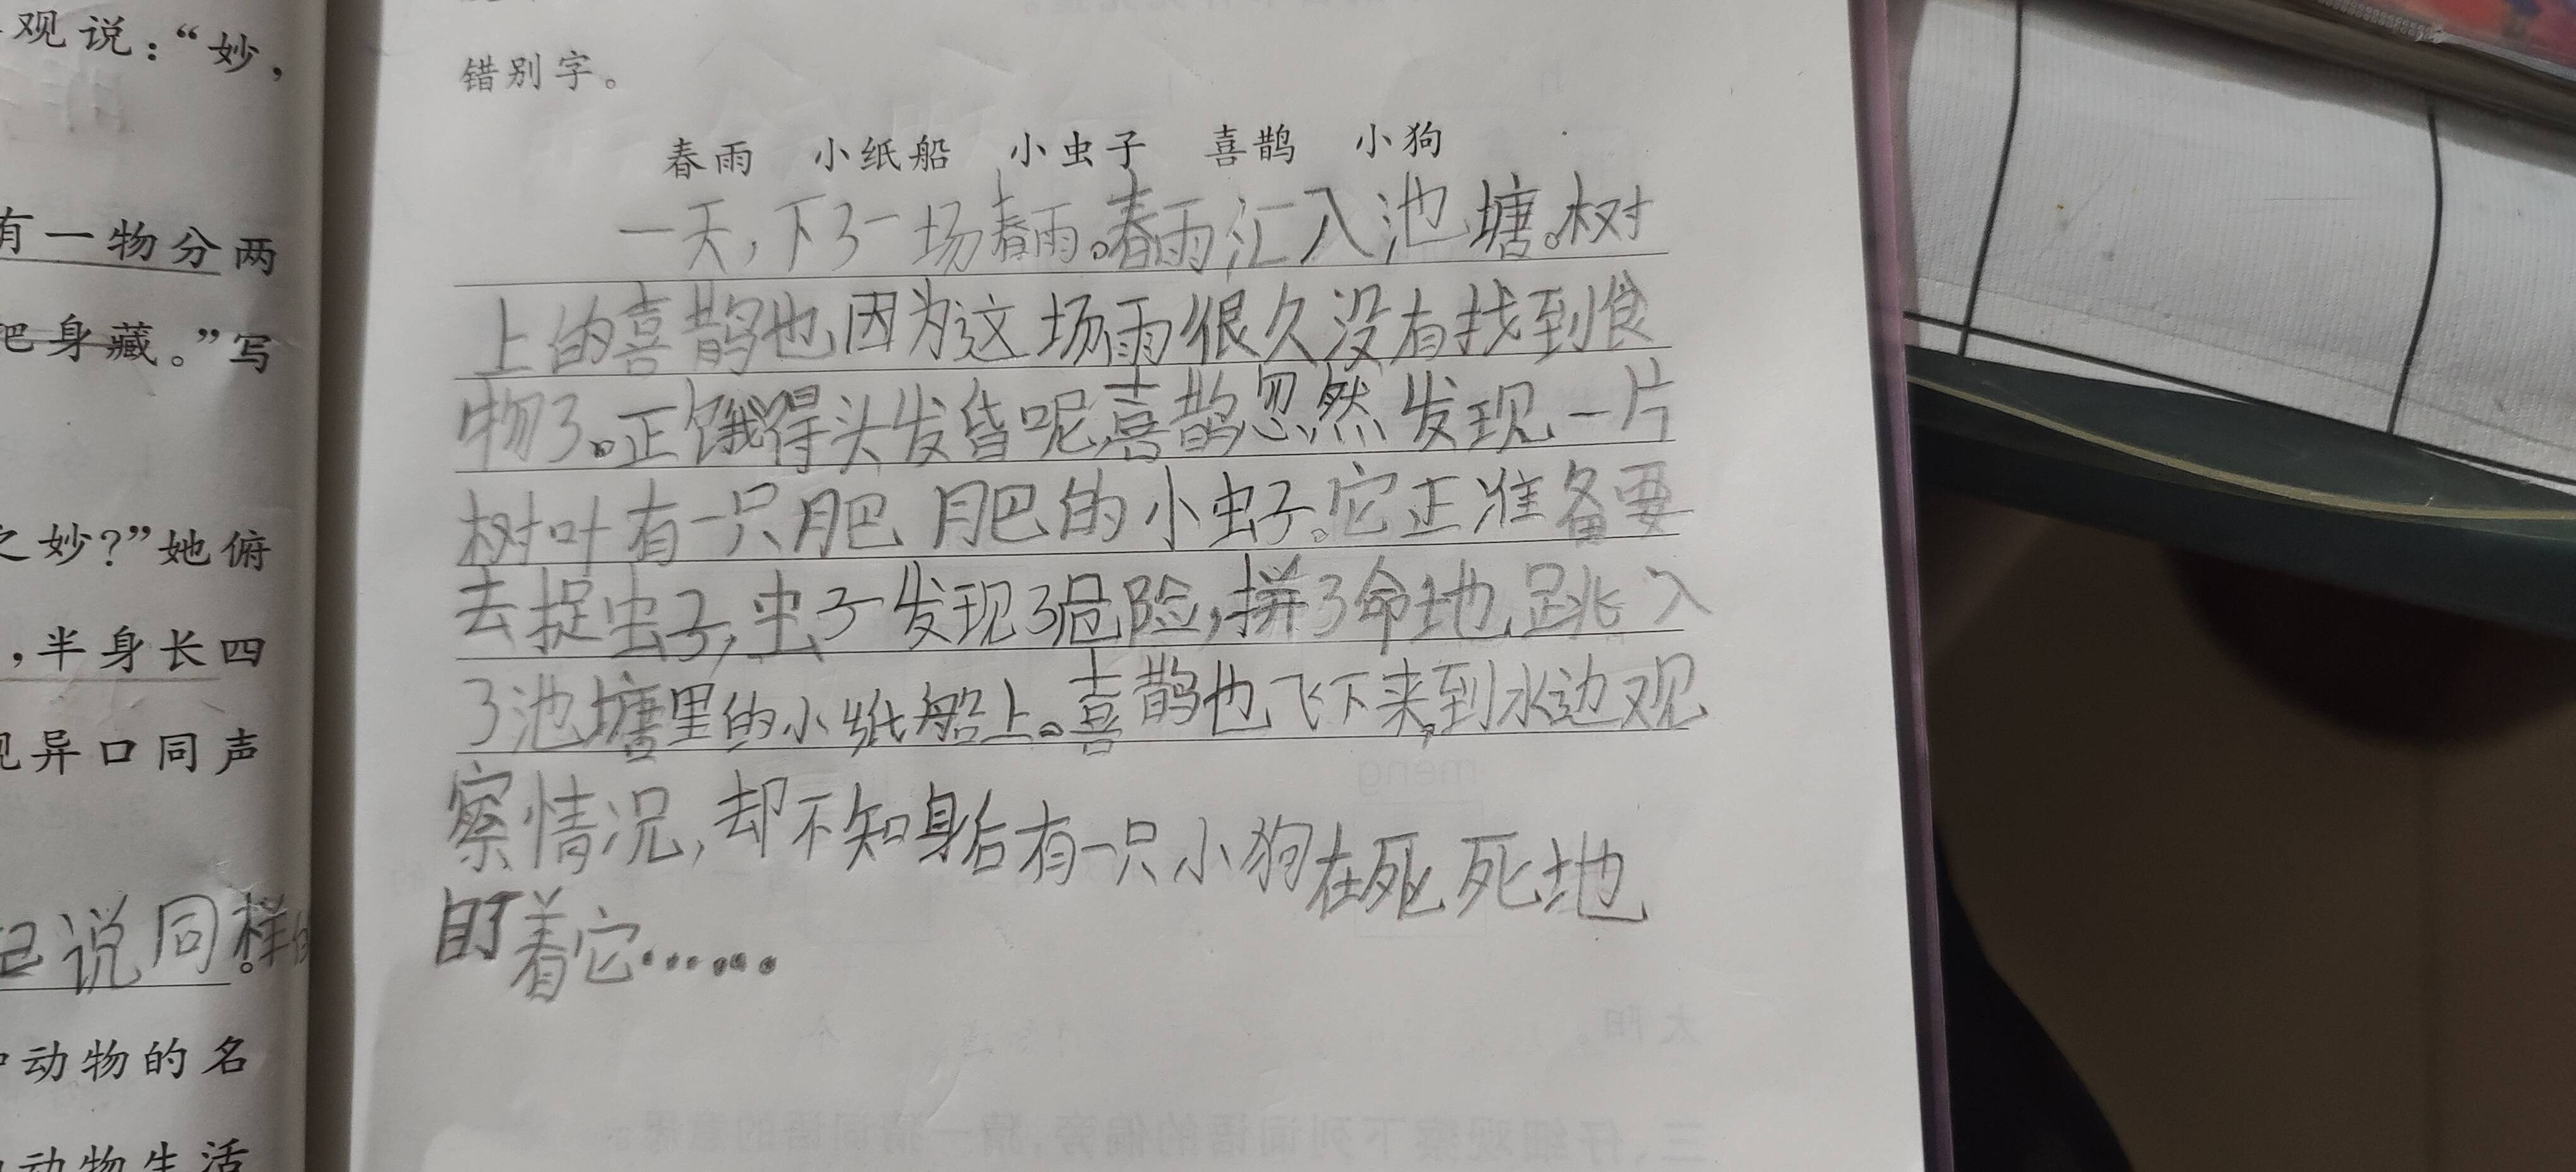 观说：“妙，
有一物分两
把身藏。”写
之妙？”她俯
，半身长四
现异口同声
己说同样的。
动物的名
动物生活
错别字。
春雨 小纸船 小虫子 喜鹊 小狗
一天，下了一场春雨。春雨汇入池塘。树
上的喜鹊也因为这场雨很久没有找到食
物了。正饿得头发昏呢，喜鹊忽然发现一片
树叶有一只肥肥的小虫子。它正准备要
去捉虫子，虫子发现了危险，拼了命地跳入
了池塘里的小纸船上。喜鹊也飞下来，到水边观
察情况，却不知身后有一只小狗在死死地
盯着它……